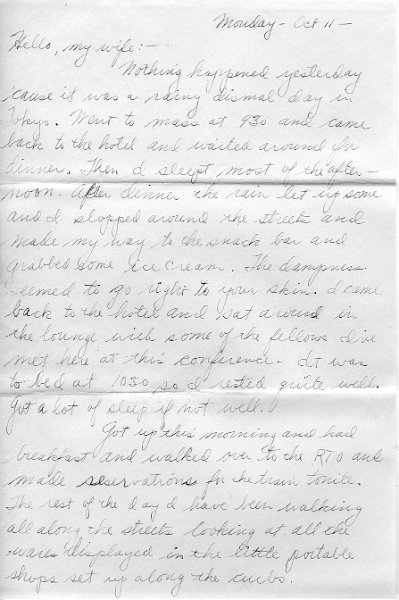 Monday - Oct 11 -
Hello, my wife: -
Nothing happened yesterday
'cause it was a rainy dismal day in
Tokyo. Went to mass at 930 and came
back to the hotel and waited around for
dinner. Then I sleept most of the after-
noon. After dinner the rain let up some
and I slopped around the streets and
made my way to the snack bar and
grabbed some ice cream. The dampness
seemed to go right to your skin. I came
back to the hotel and sat around in
the lounge with some of the fellows I've
met here at this conference. It was
to bed at 1030, so I rested quite well.
Got a lot of sleep if not well.
Got up this morning and had
breakfast and walked over to the RTO and
made reservations for the train tonite.
The rest of the day I have been walking
all along the streets looking at all the
wares displayed in the little portable
shops set up along the curbs.